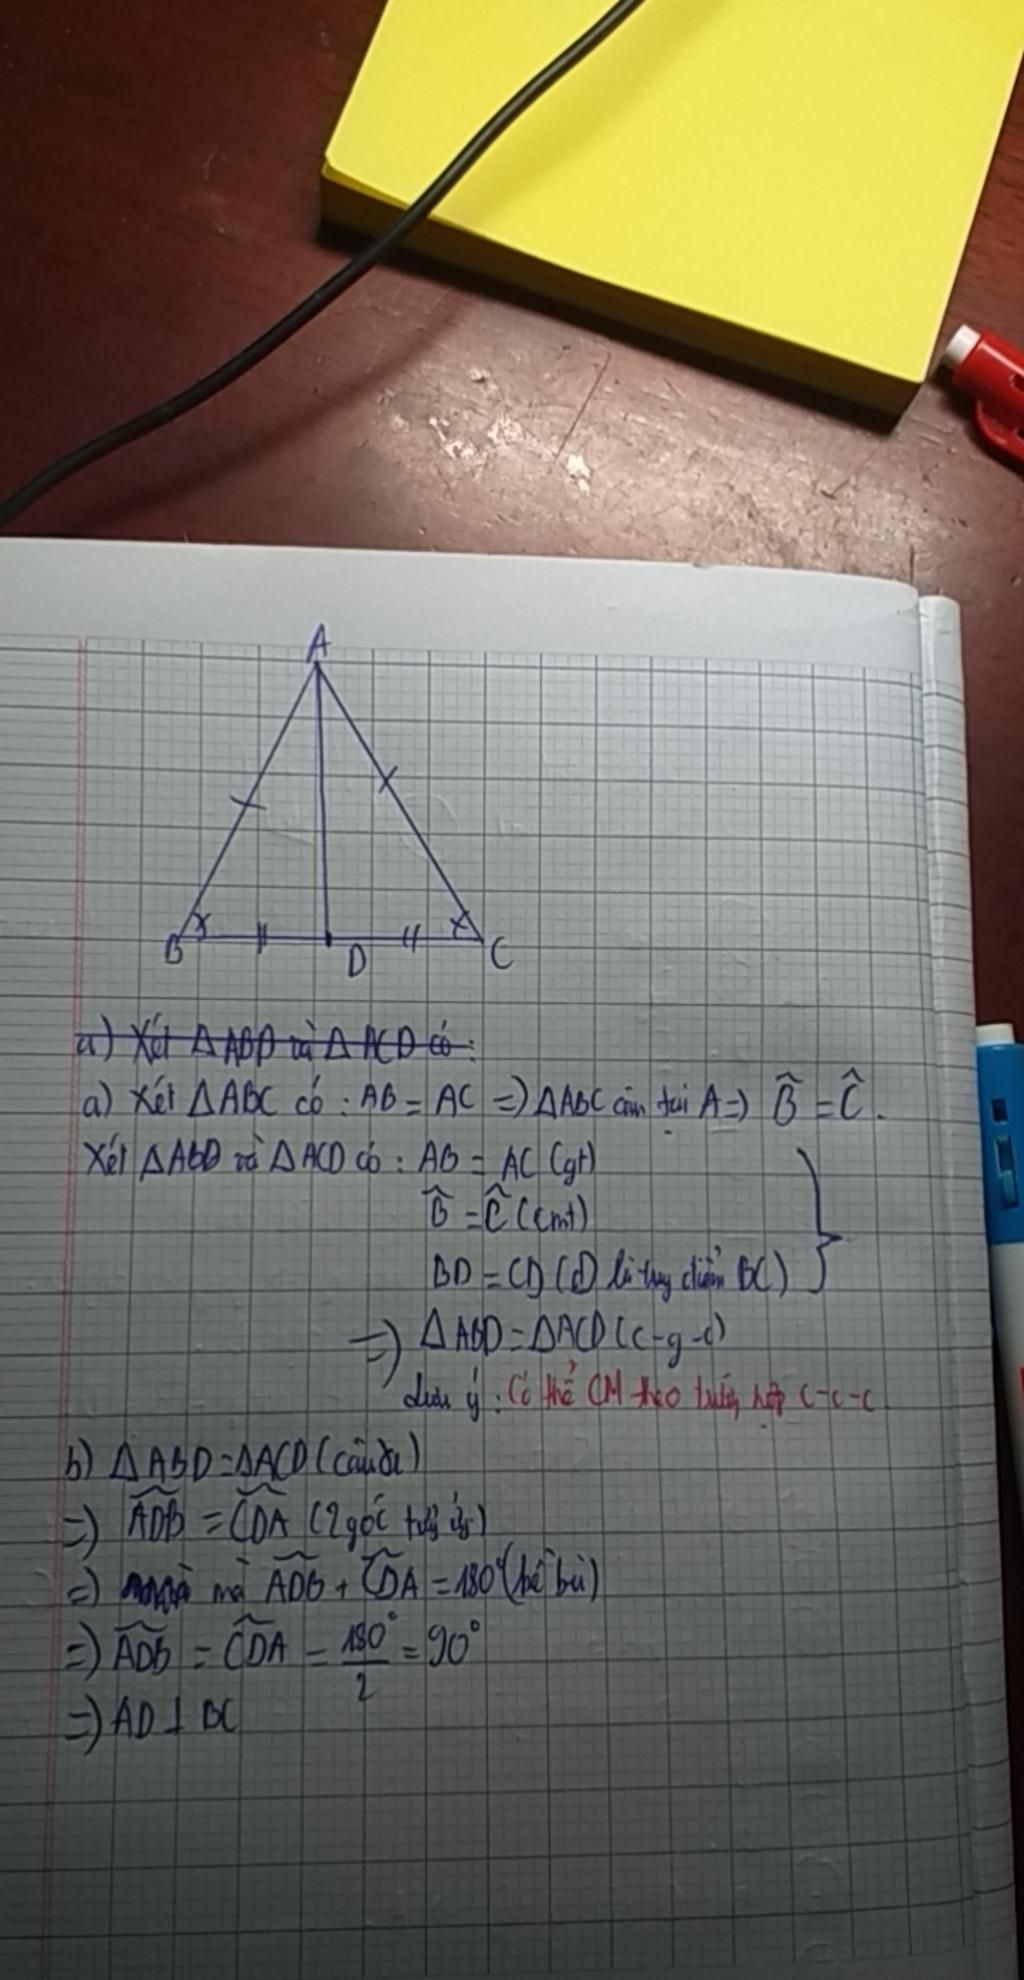 A
B
D
C
a) Xét ΔABD và ΔACD có:
a) Xét ΔABC có : AB = AC => ΔABC cân tại A => B̂ = Ĉ.
Xét ΔABD và ΔACD có : AB = AC (gt)
B̂ = Ĉ (cmt)
BD = CD (D là trung điểm BC)
=> ΔABD = ΔACD (c-g-c)
Lưu ý : Có thể CM theo trường hợp c-c-c
b) ΔABD = ΔACD (câu a)
=> ADB̂ = CDÂ (2 góc tương ứng)
=> mà ADB̂ + CDÂ = 180° (kề bù)
=> ADB̂ = CDÂ = 180°/2 = 90°
=> AD ⊥ BC